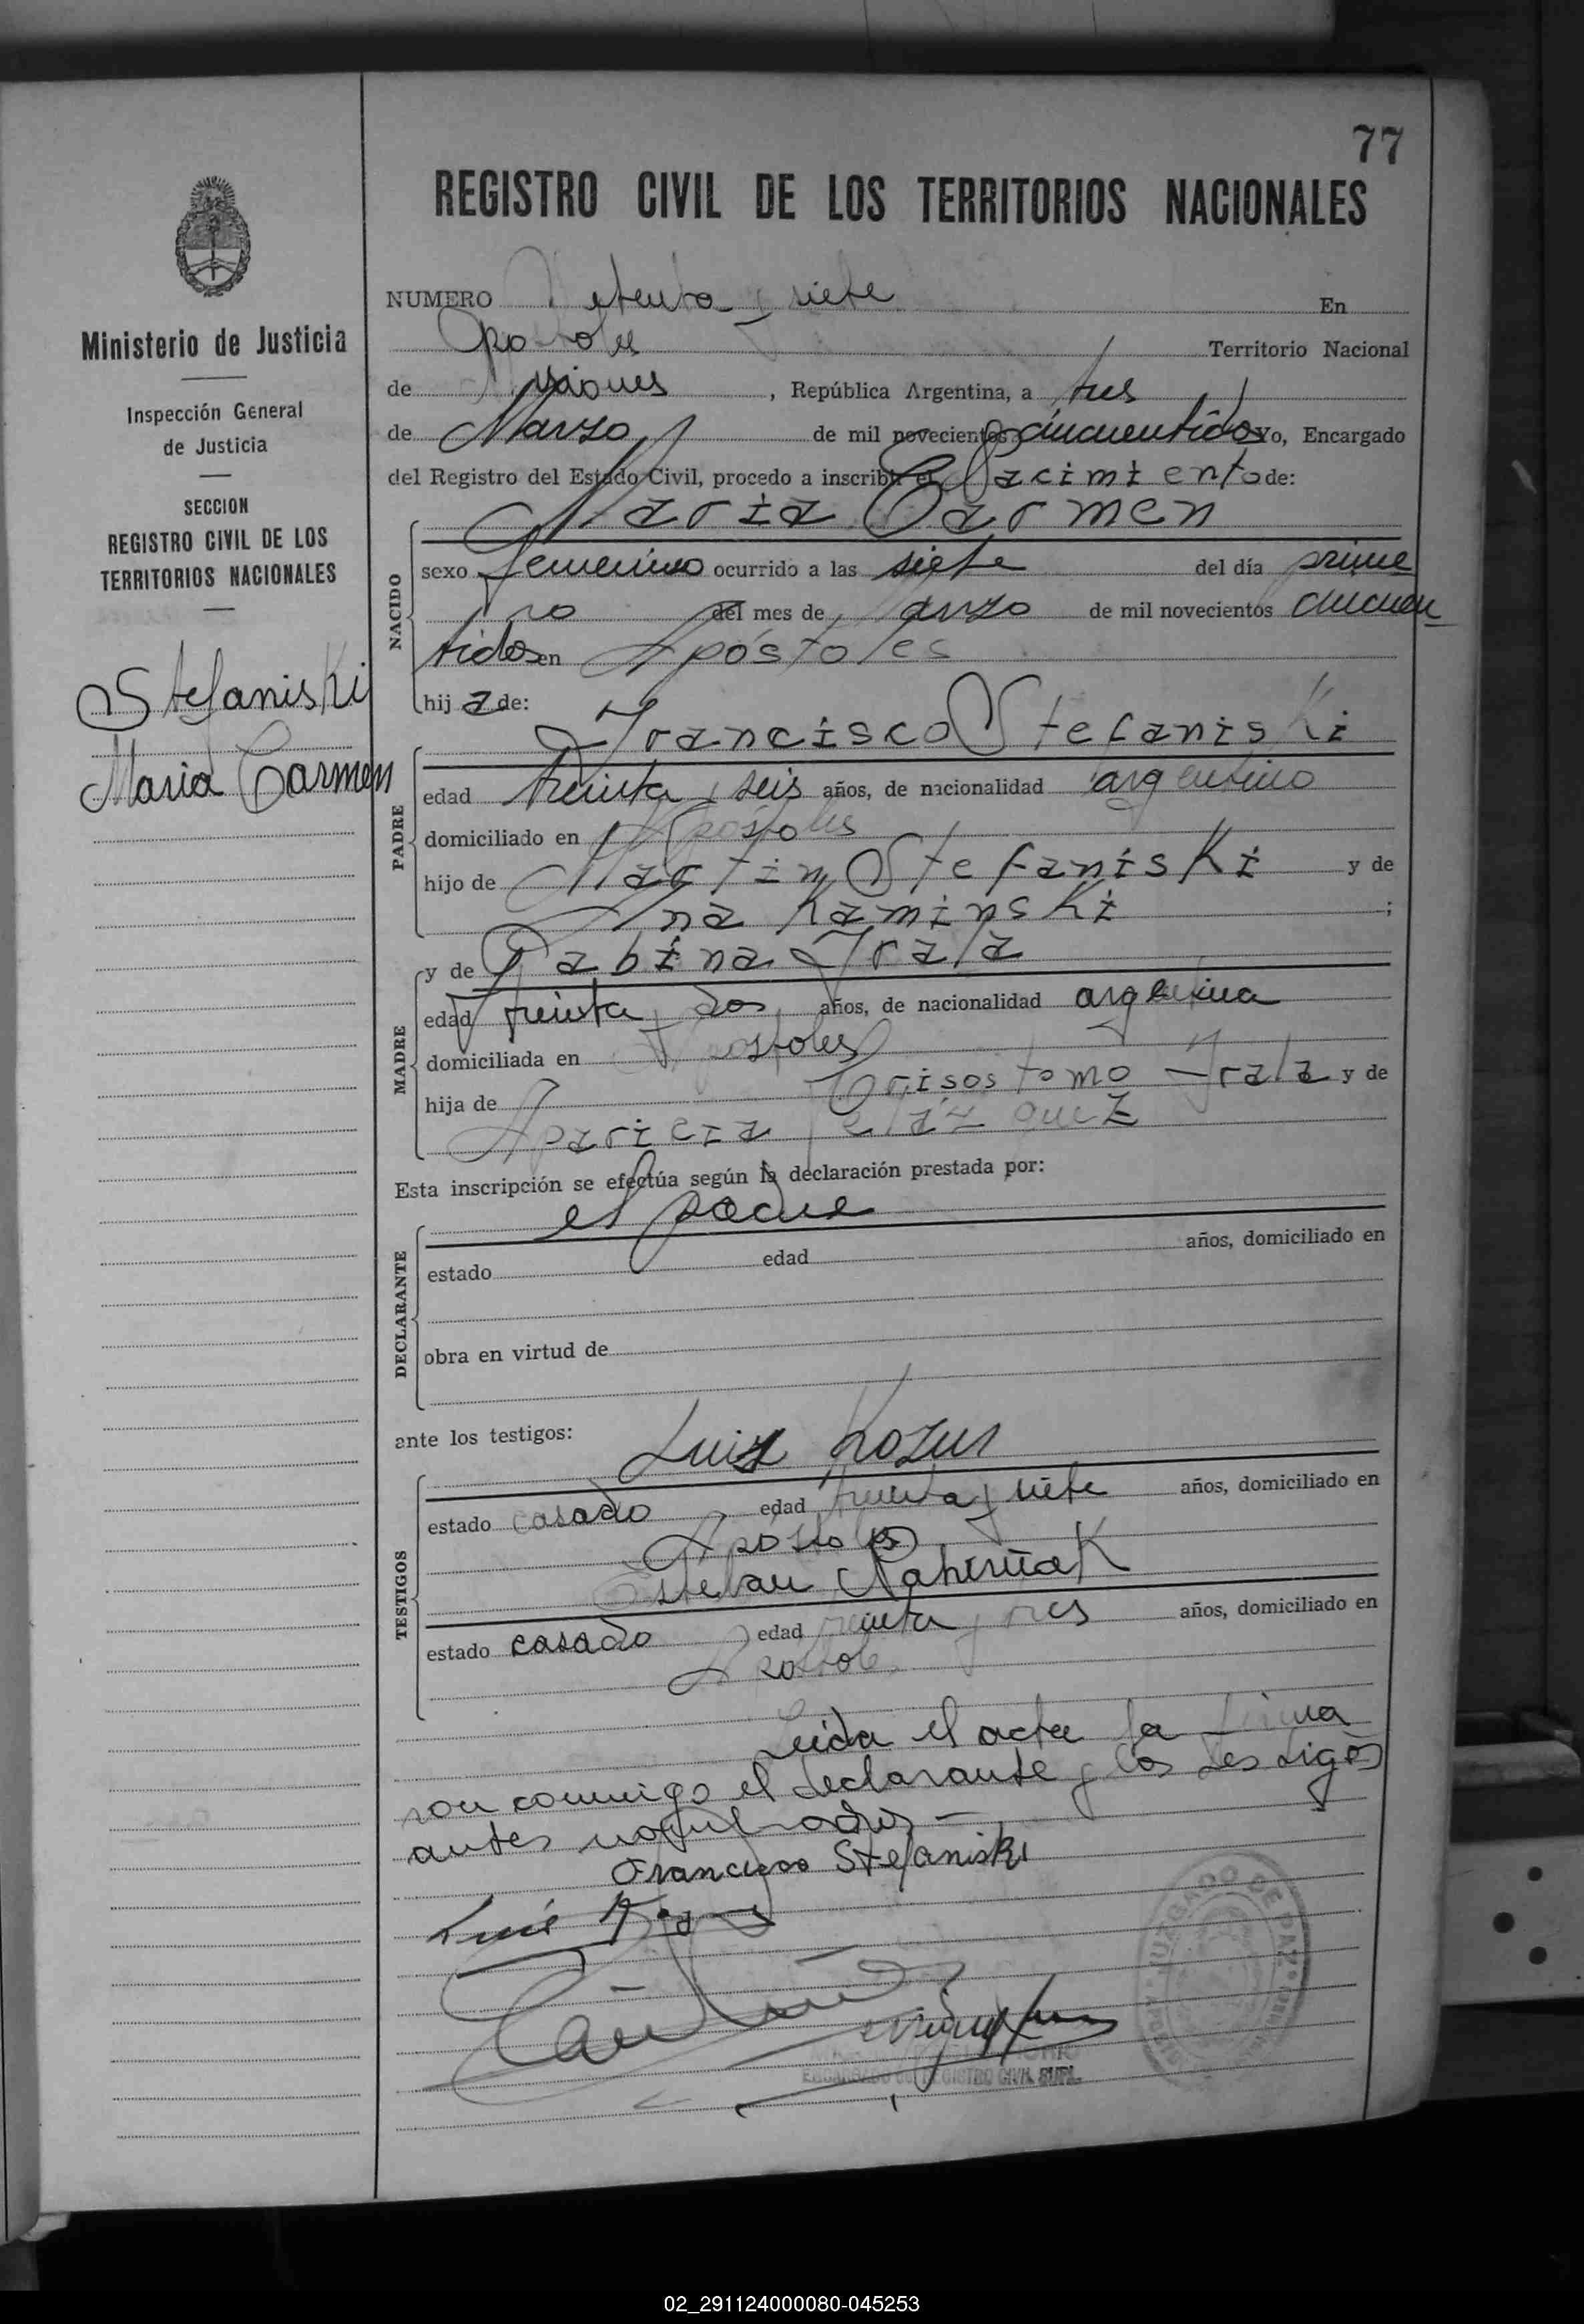 77
REGISTRO CIVIL DE LOS TERRITORIOS NACIONALES
Ministerio de Justicia
Inspección General
de Justicia
SECCION
REGISTRO CIVIL DE LOS
TERRITORIOS NACIONALES
Stefaniski
Maria Carmen
NUMERO Setenta y siete En
Apostoles Territorio Nacional
de Misiones, República Argentina, a tres
de Marzo de mil novecientos cincuentidos Yo, Encargado
del Registro del Estado Civil, procedo a inscribir el Nacimiento de:
Maria Carmen
NACIDO
sexo femenino ocurrido a las siete del día prime
ro del mes de Marzo de mil novecientos cincuen
tidos en Apóstoles
hij a de:
Francisco Stefaniski
PADRE
edad treinta y seis años, de nacionalidad argentino
domiciliado en Apóstoles
hijo de Martin Stefaniski y de
Ana Kaminski ;
y de Sabina Irala
MADRE
edad treinta y dos años, de nacionalidad argentina
domiciliada en Apostoles
hija de Crisostomo Irala y de
Aparicia Velázquez
Esta inscripción se efectúa según la declaración prestada por:
el padre
DECLARANTE
estado edad años, domiciliado en
obra en virtud de
ante los testigos:
Luis Kozus
TESTIGOS
estado casado edad treinta y siete años, domiciliado en
Apóstoles
Esteban
estado casado edad treinta y tres años, domiciliado en
Apostoles
Leida el acta la firma
ron conmigo el declarante y los testigos
antes nombrados.—
Francisco Stefaniski
Luis
JUZGADO DE PAZ
ENCARGADO DEL REGISTRO CIVIL SUPL.
02_291124000080-045253